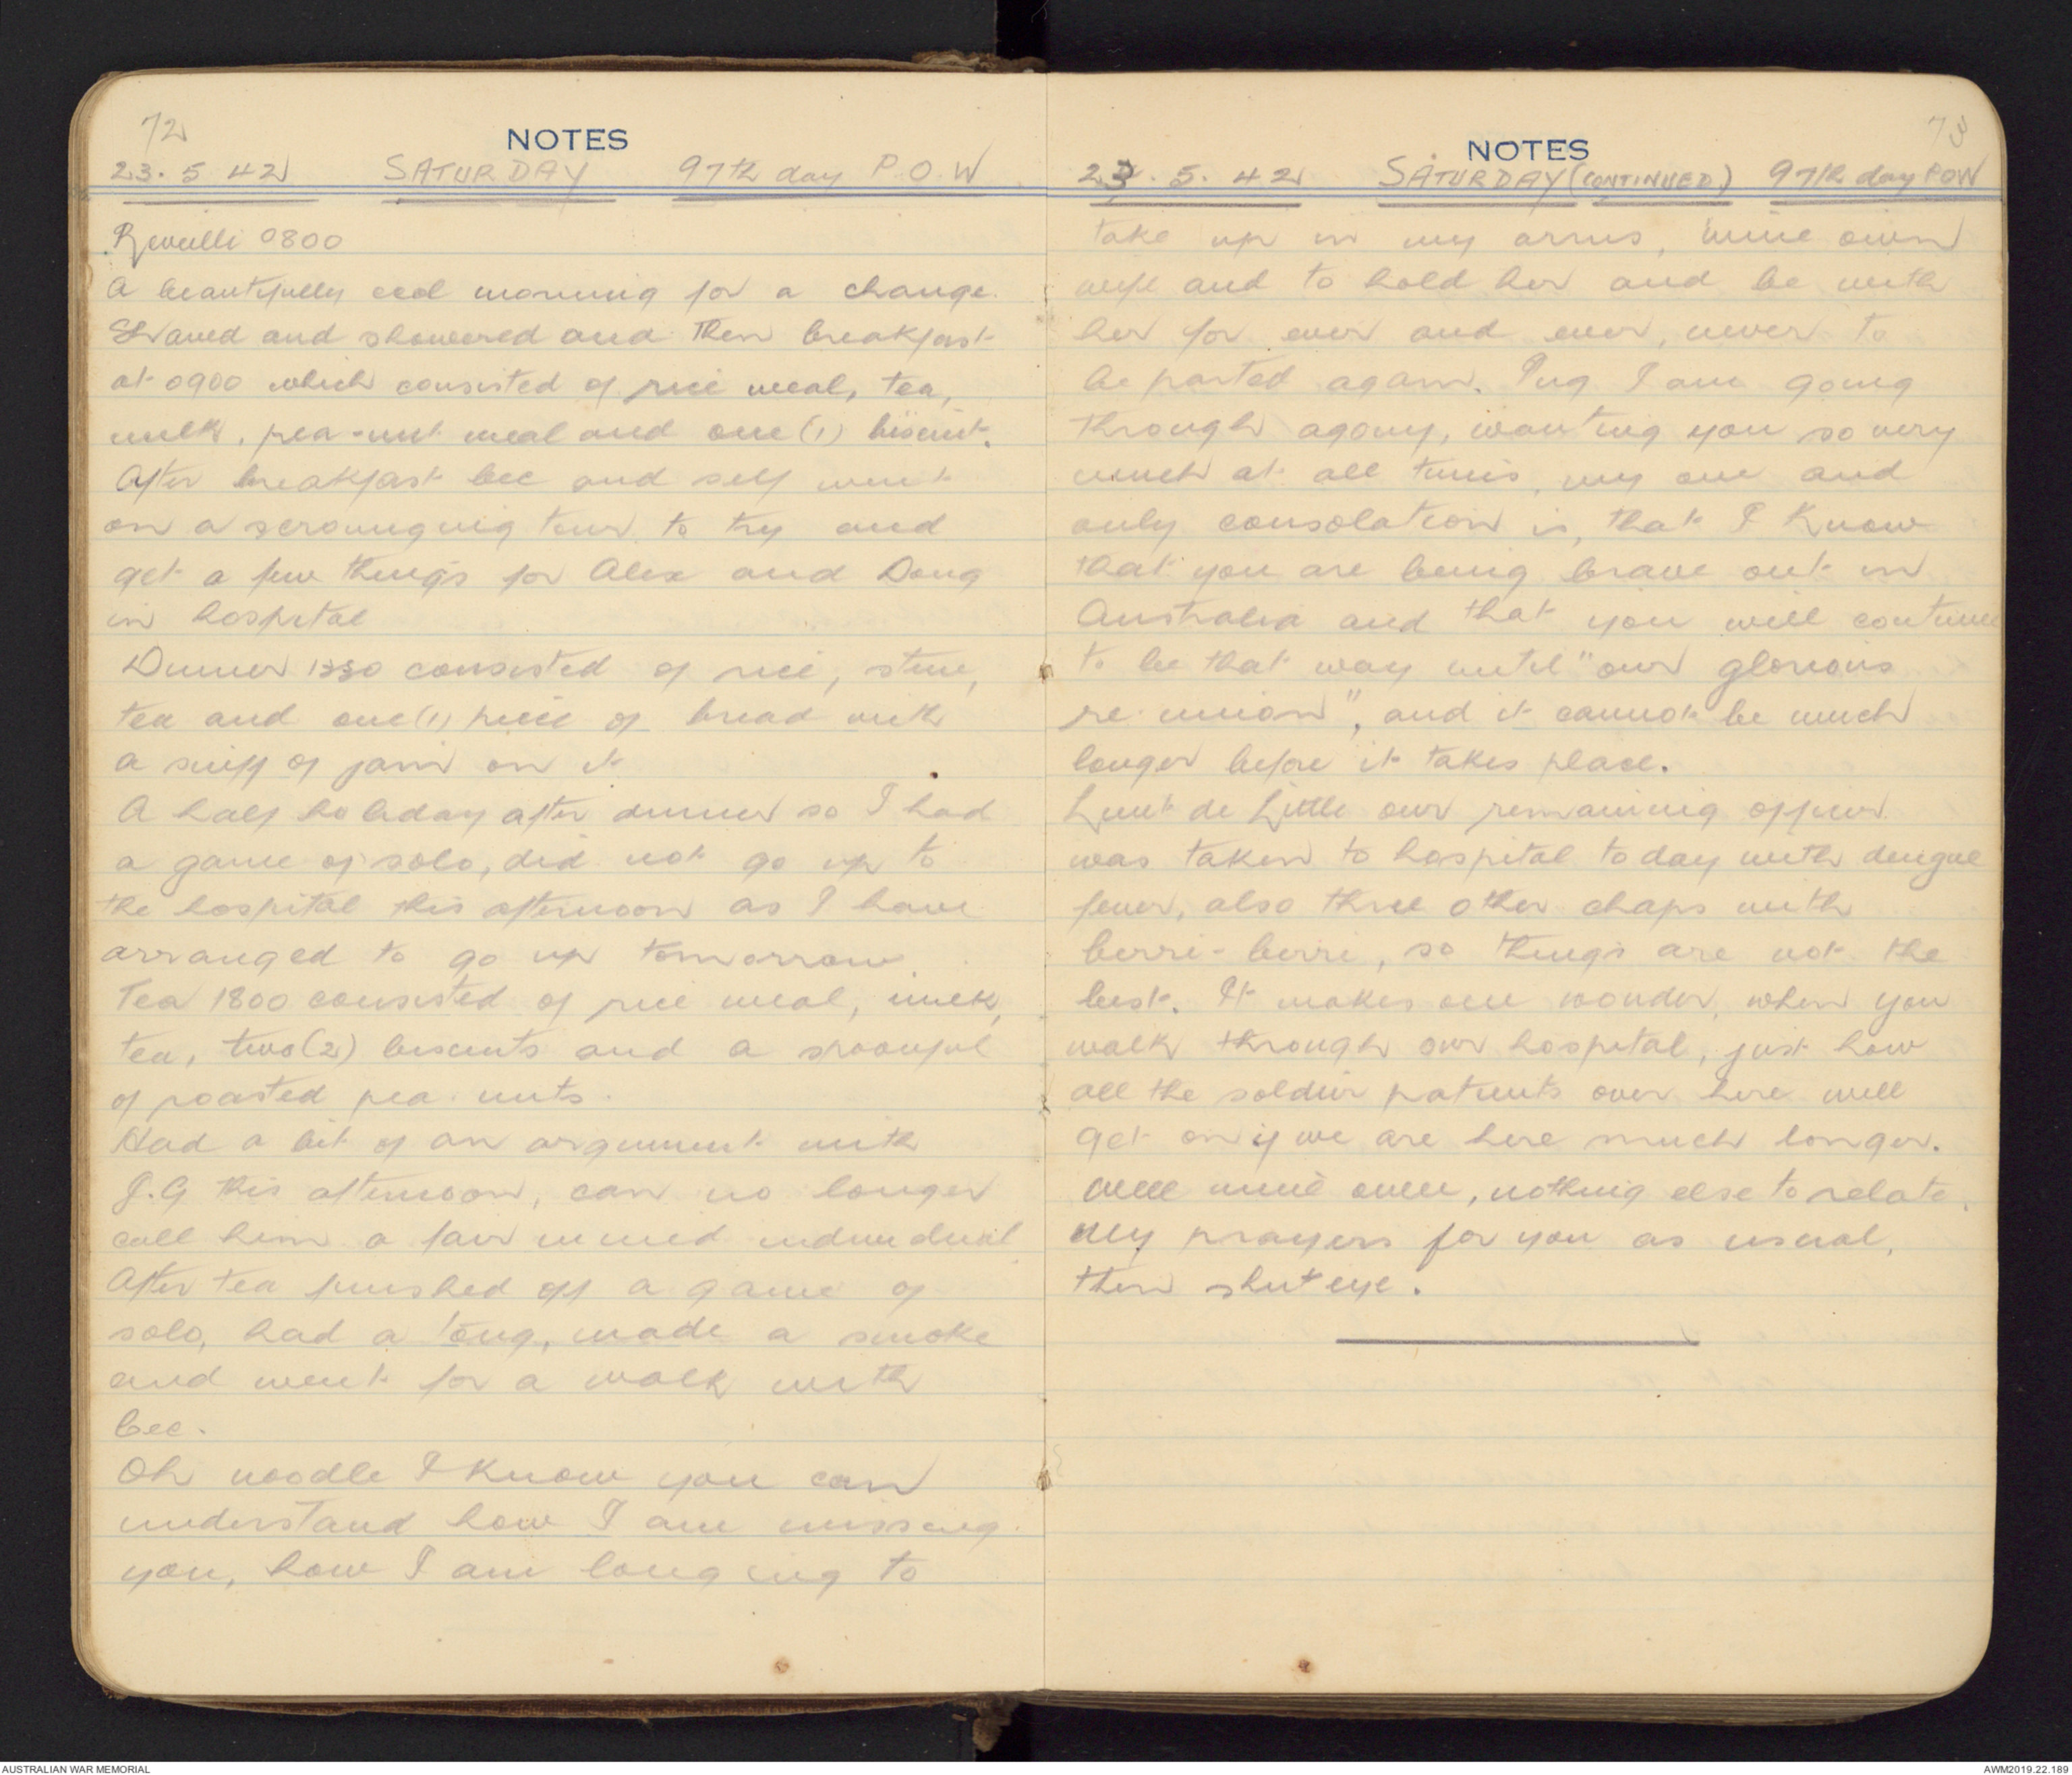 72
NOTES
23. 5 42 SATURDAY 97th day P.O.W
Reveilli 0800
A beautifully cool morning for a change.
Shaved and showered and then breakfast
at 0900 which consisted of rice meal, tea,
milk, pea-nut meal and one (1) biscuit.
After breakfast Cec and self went
on a scrounging tour to try and
get a few things for Alex and Doug
in hospital
Dinner 1330 consisted of rice, stew,
tea and one (1) piece of bread with
a sniff of jam on it
A half holiday after dinner so I had
a game of solo, did not go up to
the hospital this afternoon as I have
arranged to go up tomorrow.
Tea 1800 consisted of rice meal, milk,
tea, two (2) biscuits and a spoonful
of roasted pea nuts.
Had a bit of an argument with
J.G this afternoon, can no longer
call him a fair minded individual
After tea finished off a game of
solo, had a tong, made a smoke
and went for a walk with
Cec.
Oh noodle I know you can
understand how I am missing
you, how I am longing to
73
NOTES
23. 5. 42 SATURDAY (CONTINUED) 97th day POW
take up in my arms, mine own
wife and to hold her and be with
her for ever and ever, never to
be parted again. Pug I am going
through agony, wanting you so very
much at all times, my one and
only consolation is, that I know
that you are being brave out in
Australia and that you will continue
to be that way until "our glorious
re-union", and it cannot be much
longer before it takes place.
Lieut de Little our remaining officer
was taken to hospital today with dengue
fever, also three other chaps with
berri-berri, so things are not the
best. It makes one wonder, when you
walk through our hospital, just how
all the soldier patients over here will
get on if we are here much longer.
Well mine own, nothing else to relate.
My prayers for you as usual,
then shut eye.
AUSTRALIAN WAR MEMORIAL
AWM2019.22.189